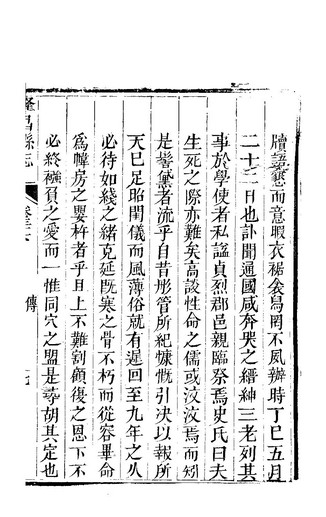 牘語懇而意暇衣裾衾舄罔不夙辦時丁巳五月
二十三日也訃聞遍國咸奔哭之縉紳三老列其
事於學使者私謚貞烈郡邑親臨祭焉史氏曰夫
生死之際亦難矣高談性命之儒或汶汶焉而矧
是髻黛者流乎自昔彤管所紀慷慨引決以報所
天已足昭閨儀而風薄俗就有遲回至九年之久
必待如綫之緒克延既寒之骨不朽而從容畢命
爲幃房之嬰杵者乎且上不難割顧復之恩下不
必終襁負之愛而一惟同穴之盟是尋胡其定也
隆昌縣志
傳